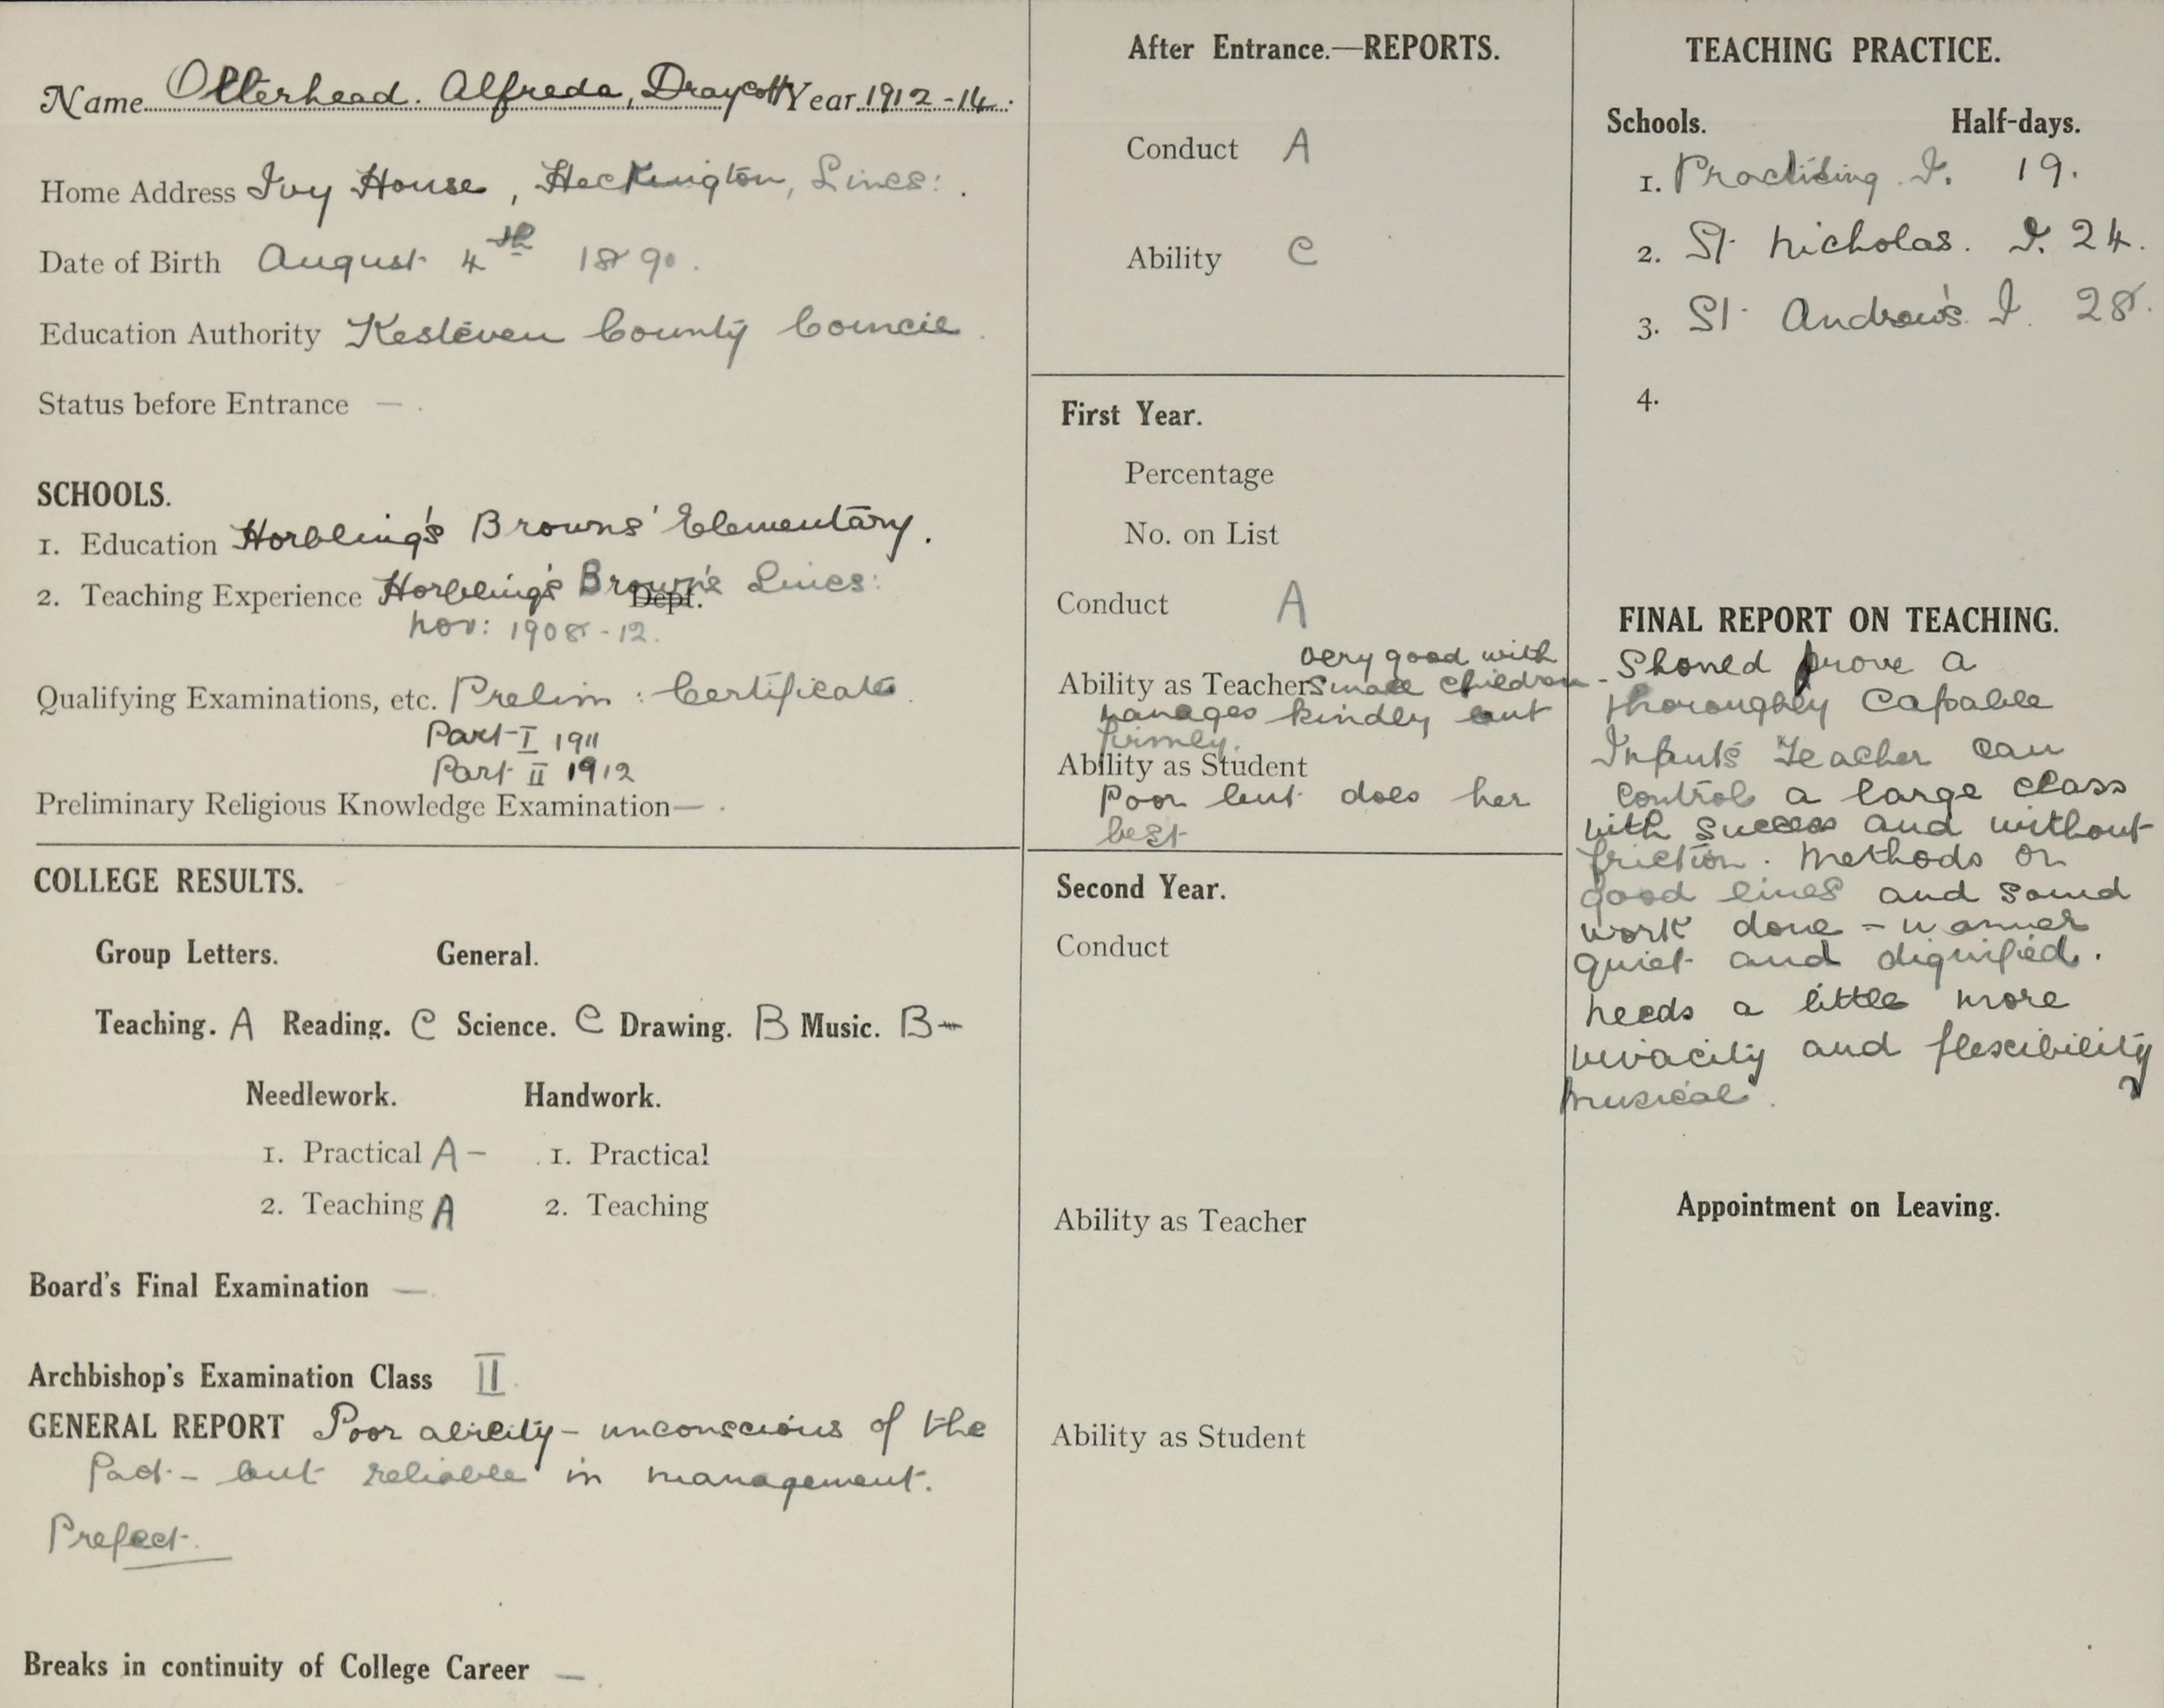 Name Otterhead. Alfreda, Draycott Year 1912-14.
Home Address Ivy House, Heckington, Lincs: .
Date of Birth August 4th 1890.
Education Authority Kesteven County Council.
Status before Entrance — .
SCHOOLS.
1. Education Horbling's Browns' Elementary.
2. Teaching Experience Horbling's Brown's Lincs:
Dept.
Nov: 1908-12.
Qualifying Examinations, etc. Prelim: Certificate.
Part I 1911
Part II 1912
Preliminary Religious Knowledge Examination— .
COLLEGE RESULTS.
Group Letters. General.
Teaching. A Reading. C Science. C Drawing. B Music. B-
Needlework. Handwork.
1. Practical A- 1. Practical
2. Teaching A 2. Teaching
Board's Final Examination —
Archbishop's Examination Class II.
GENERAL REPORT Poor ability - unconscious of the
fact - but reliable in management.
Prefect.
Breaks in continuity of College Career — .
After Entrance.—REPORTS.
Conduct A
Ability C
First Year.
Percentage
No. on List
Conduct A
very good with
Ability as Teacher small children -
manages kindly but
firmly.
Ability as Student
Poor but does her
best
Second Year.
Conduct
Ability as Teacher
Ability as Student
TEACHING PRACTICE.
Schools. Half-days.
1. Practising I. 19.
2. St. Nicholas. I. 24.
3. St. Andrew's I. 28.
4.
FINAL REPORT ON TEACHING.
Should prove a
thoroughly capable
Infants Teacher can
control a large class
with success and without
friction. Methods on
good lines and sound
work done - manner
quiet and dignified.
needs a little more
vivacity and flexibility
Musical.
Appointment on Leaving.